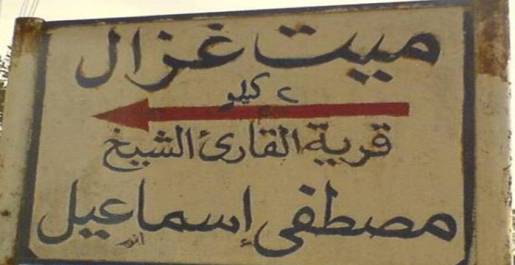 ميت غزال
٢ كيلو
قرية القارئ الشيخ
مصطفى إسماعيل